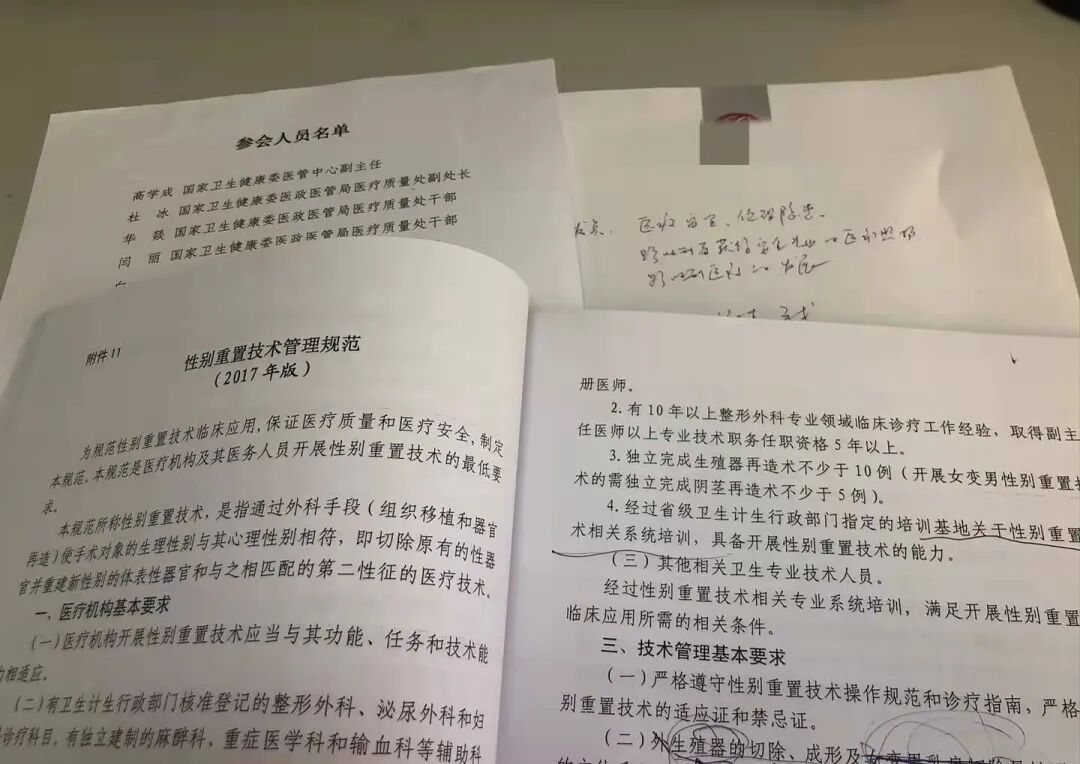 参会人员名单
高学成 国家卫生健康委医管中心副主任
杜 冰 国家卫生健康委医政医管局医疗质量处副处长
华 燚 国家卫生健康委医政医管局医疗质量处干部
闫 丽 国家卫生健康委医政医管局医疗质量处干部
医疗安全、伦理
附件 11
性别重置技术管理规范
（2017 年版）
为规范性别重置技术临床应用，保证医疗质量和医疗安全，制定
本规范。本规范是医疗机构及其医务人员开展性别重置技术的最低要
求。
本规范所称性别重置技术，是指通过外科手段（组织移植和器官
再造）使手术对象的生理性别与其心理性别相符，即切除原有的性器
官并重建新性别的体表性器官和与之相匹配的第二性征的医疗技术。
一、医疗机构基本要求
（一）医疗机构开展性别重置技术应当与其功能、任务和技术能
力相适应。
（二）有卫生计生行政部门核准登记的整形外科、泌尿外科和妇
诊疗科目，有独立建制的麻醉科、重症医学科和输血科等辅助科
册医师。
2. 有 10 年以上整形外科专业领域临床诊疗工作经验，取得副主
任医师以上专业技术职务任职资格 5 年以上。
3. 独立完成生殖器再造术不少于 10 例（开展女变男性别重置技
术的需独立完成阴茎再造术不少于 5 例）。
4. 经过省级卫生计生行政部门指定的培训基地关于性别重置
术相关系统培训，具备开展性别重置技术的能力。
（三）其他相关卫生专业技术人员。
经过性别重置技术相关专业系统培训，满足开展性别重置
临床应用所需的相关条件。
三、技术管理基本要求
（一）严格遵守性别重置技术操作规范和诊疗指南，严格
别重置技术的适应证和禁忌证。
（二）外生殖器的切除、成形及女变男乳房